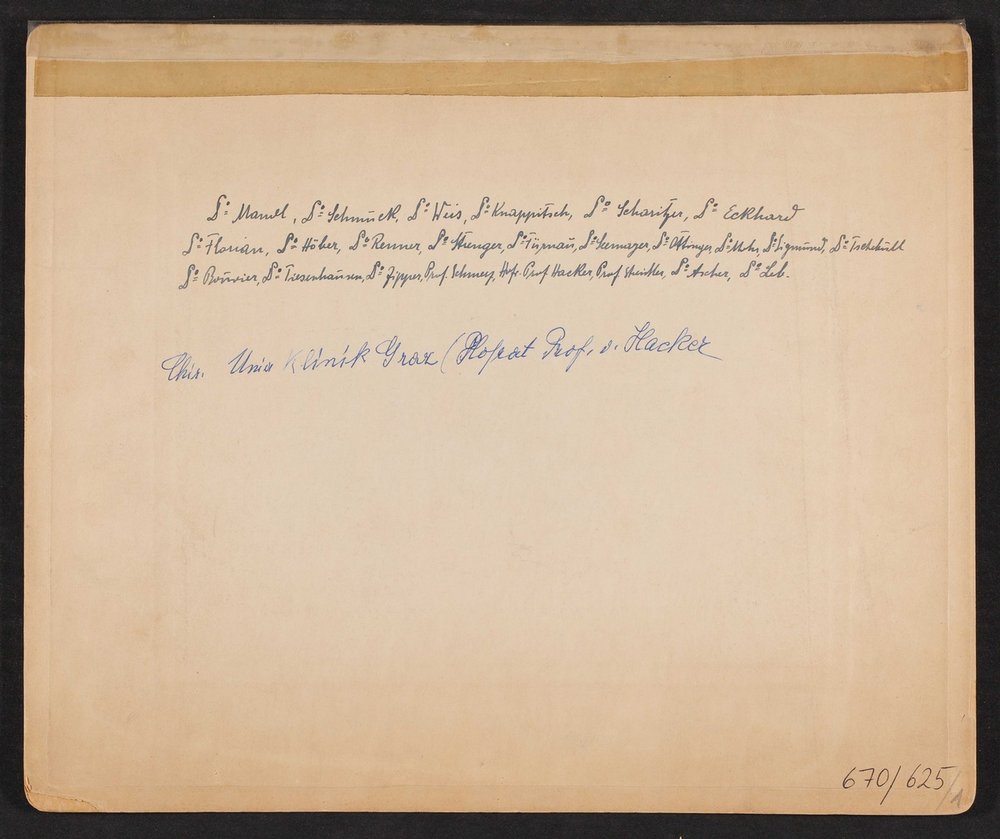 Dr. Mandl, Dr. Schmuck, Dr. Weis, Dr. Knappitsch, Dr. Scharitzer, Dr. Eckhard
Dr. Florian, Dr. Höber, Dr. Renner Dr. Strenger, Dr. Türnau, Dr. Seemayer, Dr. Mohr, Dr. Sigmund, Dr. Tschebull
Dr. Bouvier, Dr. Tiesenhausen, Dr. Zipper, Prof. Schmerz, Hofr. Prof. Hacker, Prof. Streissler, Dr. Ascher, Dr. Leb.
Chir. Univ Klinik Graz (Hofrat Prof. v. Hacker
670/625/1